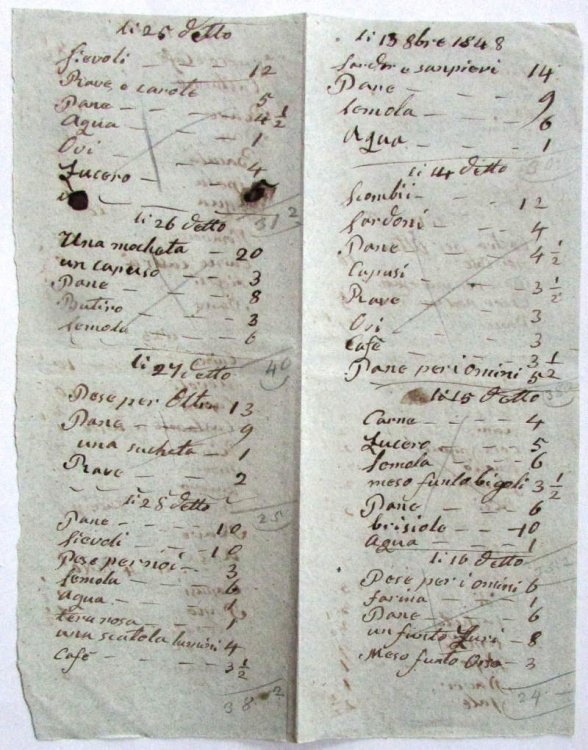 li 25 detto
Sievoli - - 12
Rave e carote 5
Pane - - - 4 1/2
Agua - - - 1
Ovi - - - 4
Zucero - - 5
31 2
li 26 detto
Una mocheta - 20
un capuso - - 3
Pane - - - 8
Butiro - - - 3
Semola - - - 6
40
li 27 detto
Pese per 13
Pane - - - 9
una sacheta - 1
Rave - - - 2
25
li 28 detto
Pane - - - 10
Sievoli - - - 10
Pese per noi - 3
Semola - - - 6
agua - - - 1
tera rosa - - 1
una scatola lumini 4
Café - - - 3 1/2
38 2
li 13 8bre 1848
Sarde e sanpieri 14
Pane - - - 9
Semola - - 6
Agua - - - 1
30
li 14 detto
Scombri - - 12
Sardoni - - 4
Pane - - - 4 1/2
Capusi - - 3 1/2
Rave - - - 3
Ovi - - - 3
Café - - - 3 1/2
Pane per i omini 5
li 15 detto
Carne - - - 4
Zucero - - 5
Semola - - 6
meso funto bigoli 3 1/2
Pane - - - 6
brisiole - - 10
Agua - - - 1
li 16 detto
Pese per i omini 6
farina - - - 1
Pane - - - 6
un funto - 8
Meso funto Orso - 3
24